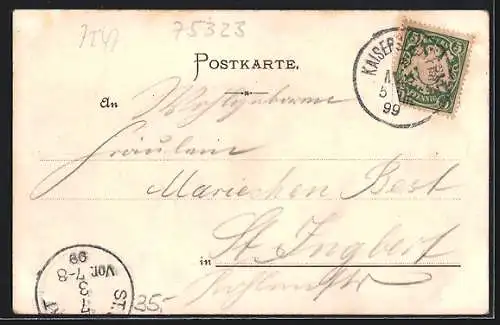 75323
POSTKARTE.
KAISER
5
99
5 5
PFENNIG
An Wohlgeborene
Fräulein
Mariechen Best
in St. Ingbert
ST.
7
3
Vor. 7-8
99
35.-